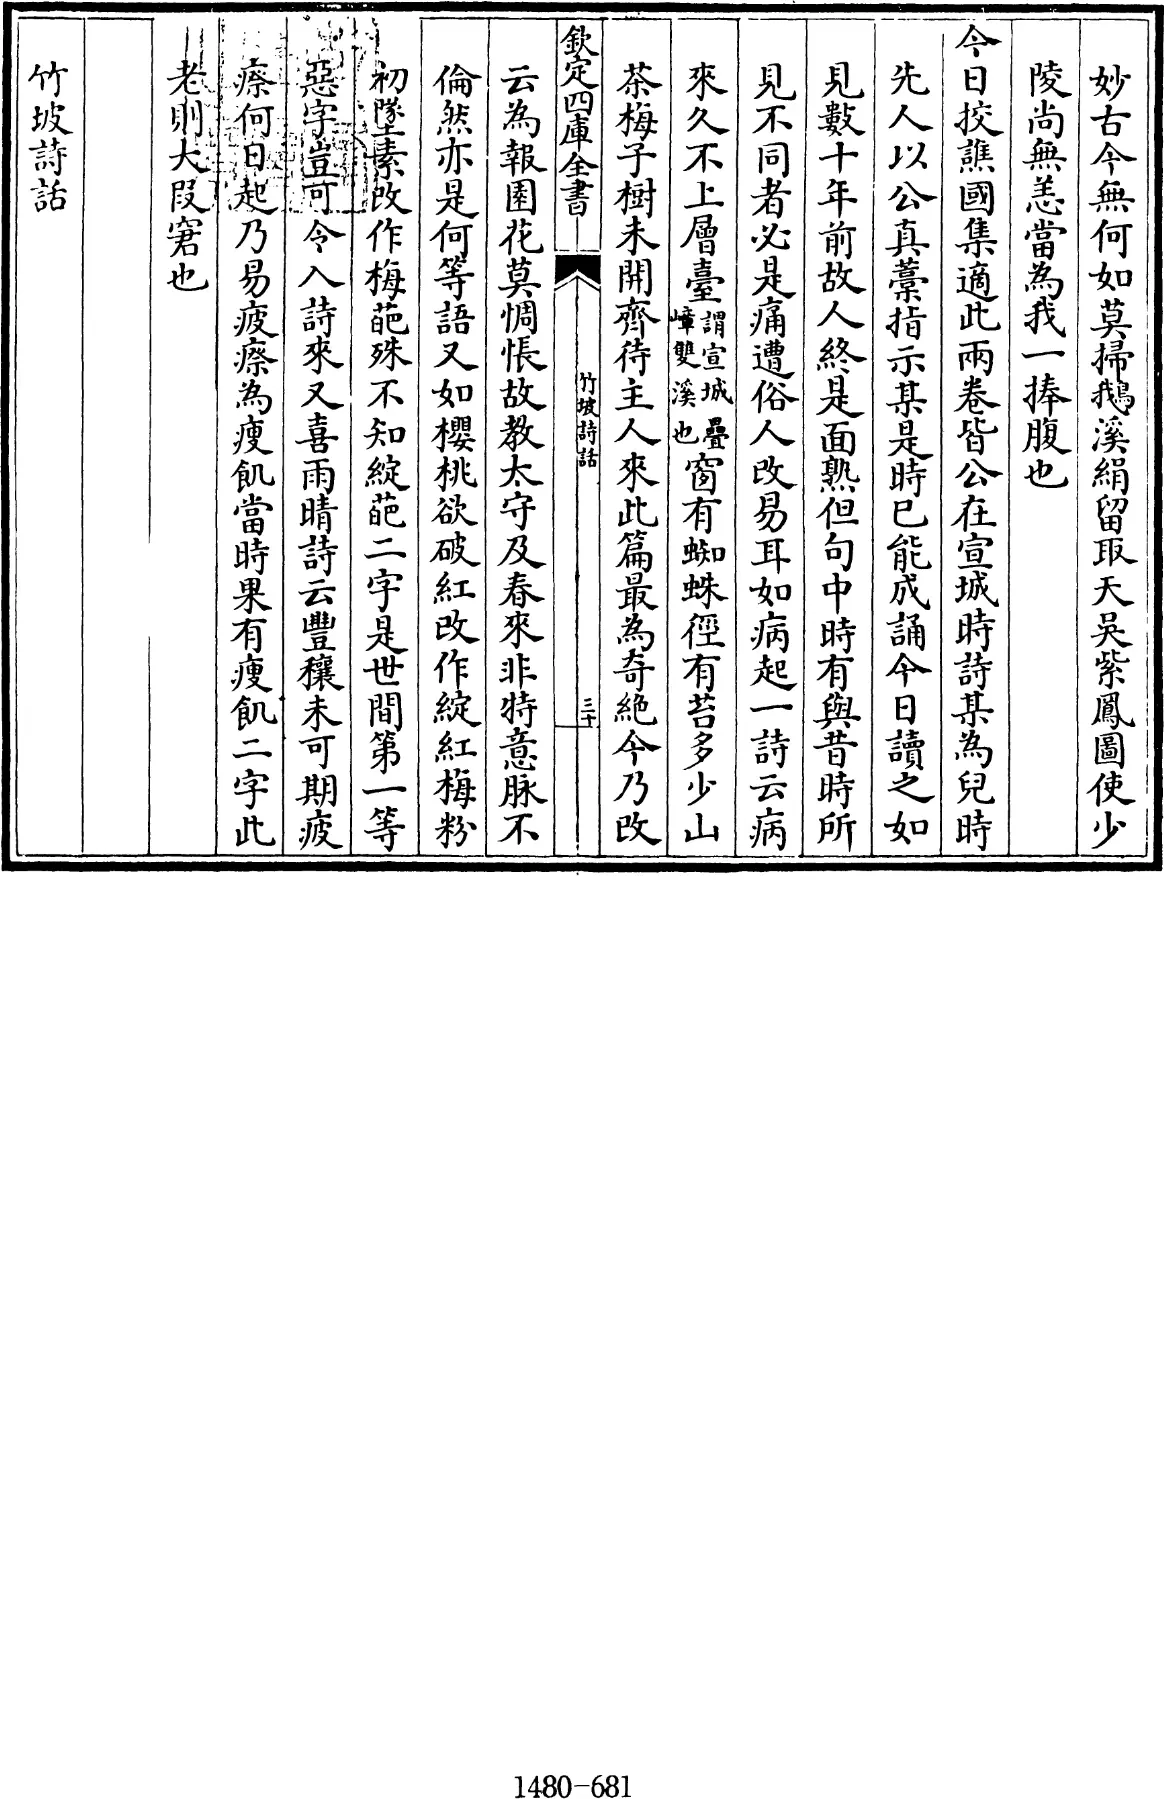 妙古今無何如莫掃鵝溪絹留取天吳紫鳳圖使少
陵尚無恙當為我一捧腹也
今日挍譙國集適此兩卷皆公在宣城時詩某為兒時
先人以公真藁指示某是時已能成誦今日讀之如
見數十年前故人終是面熟但句中時有與昔時所
見不同者必是痛遭俗人改易耳如病起一詩云病
來久不上層臺謂宣城疊嶂雙溪也窗有蜘蛛徑有苔多少山
茶梅子樹未開齊待主人來此篇最為奇絶今乃改
欽定四庫全書
竹坡詩話
三十
云為報園花莫惆悵故教太守及春來非特意脉不
倫然亦是何等語又如櫻桃欲破紅改作綻紅梅粉
初墜素改作梅葩殊不知綻葩二字是世間第一等
惡字豈可令入詩來又喜雨晴詩云豐穰未可期疲
瘵何日起乃易疲瘵為瘦飢當時果有瘦飢二字此
老則大叚窘也
竹坡詩話
1480-681